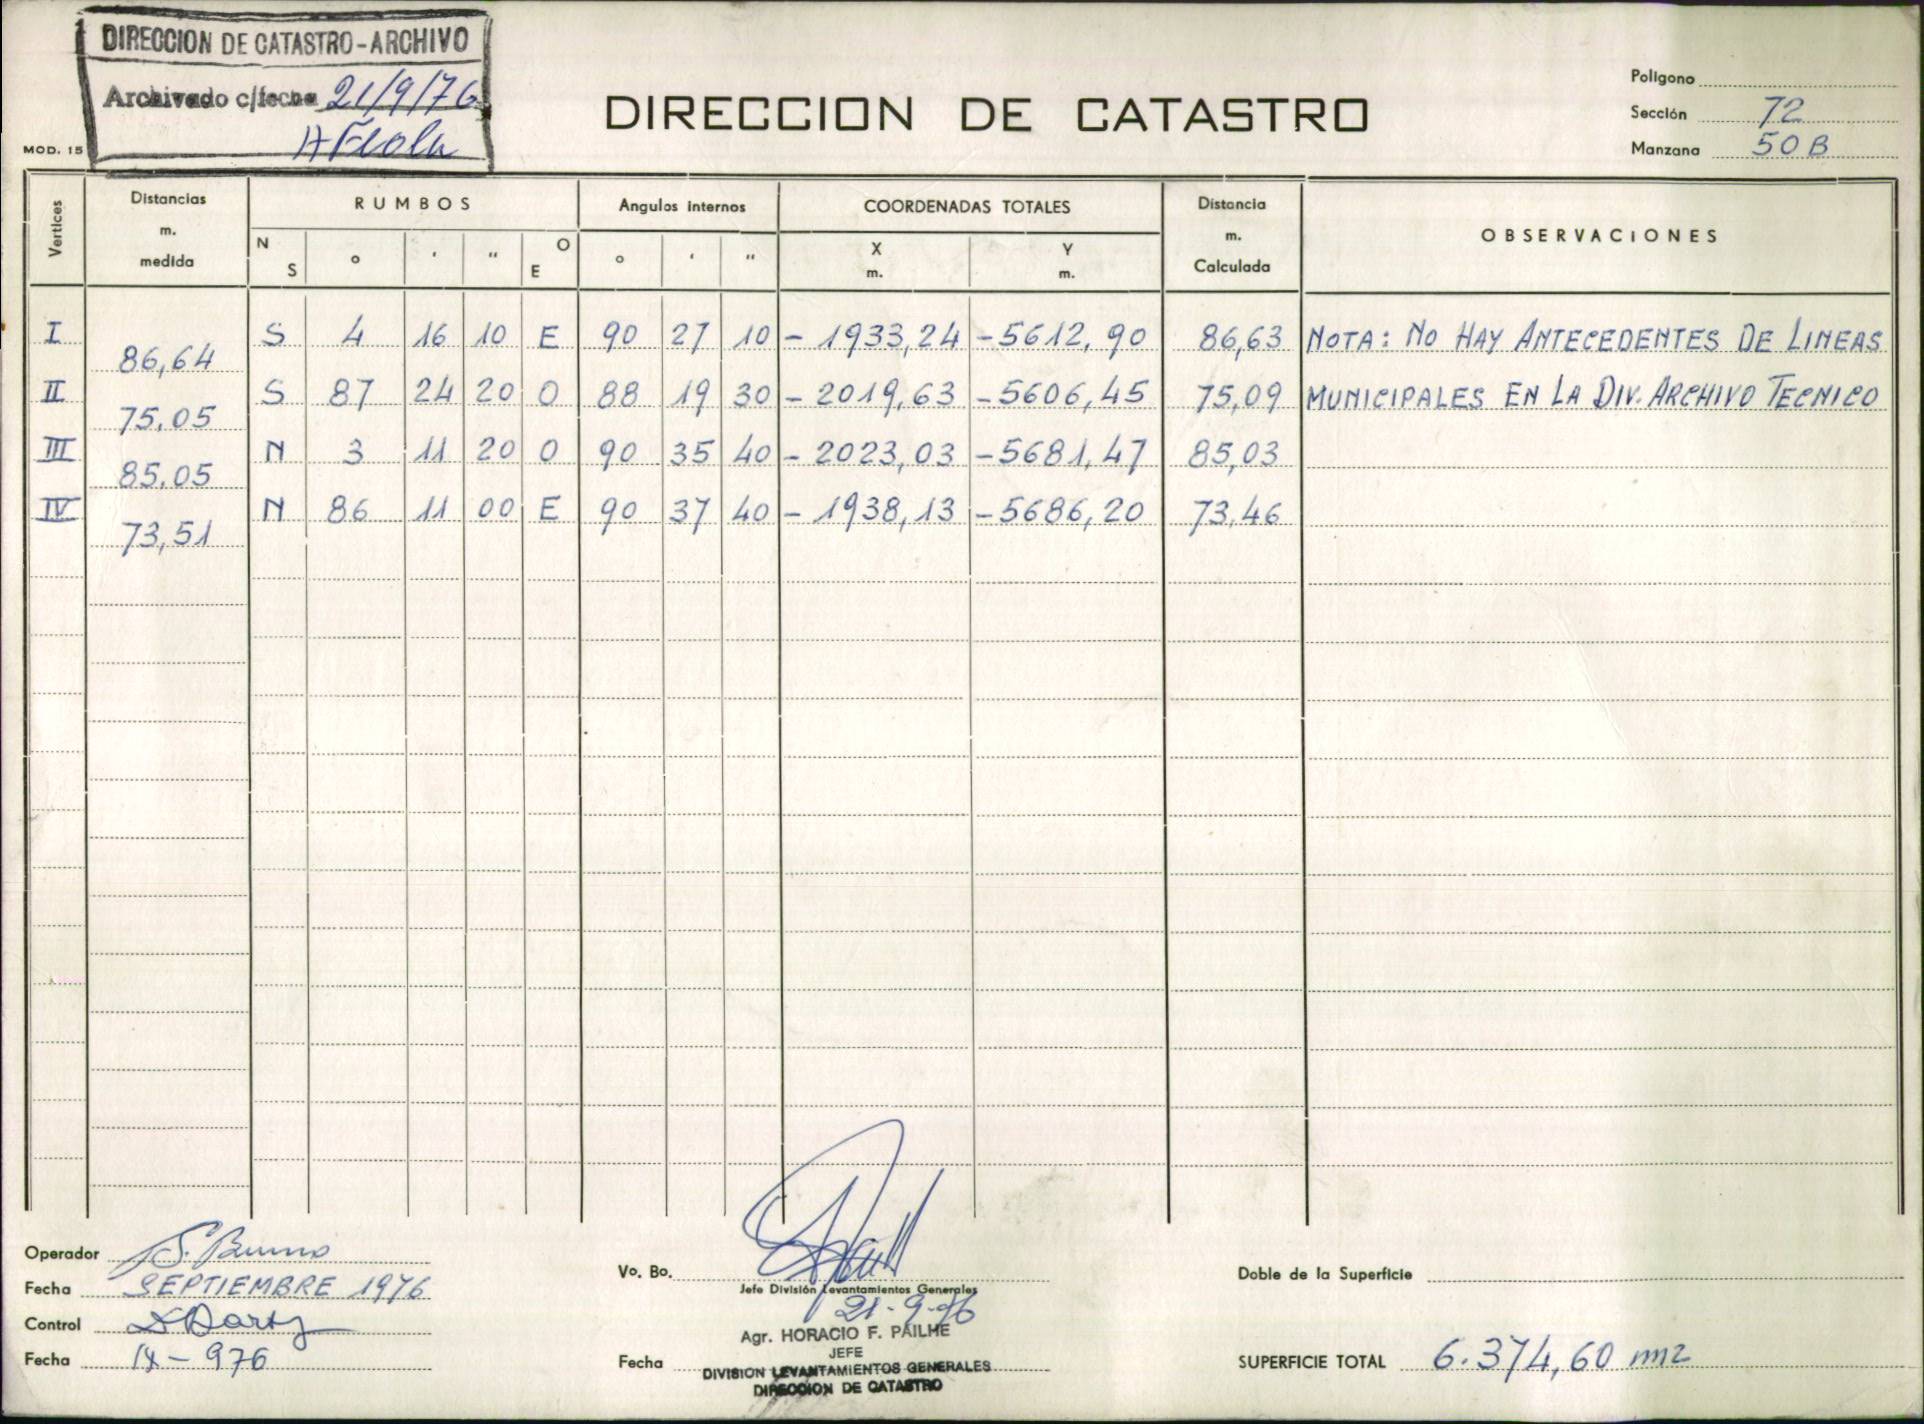 DIRECCION DE CATASTRO-ARCHIVO
Archivado c/fecha 21/9/76
MOD. 15
DIRECCION DE CATASTRO
Poligono
Sección 72
Manzana 50 B
Vertices Distancias m. medida RUMBOS Angulos internos COORDENADAS TOTALES Distancia m. Calculada OBSERVACIONES
N S ° ' " O E ° ' " X m. Y m.
I S 4 16 10 E 90 27 10 - 1933,24 -5612,90 86,63 NOTA: NO HAY ANTECEDENTES DE LINEAS
86,64
II S 87 24 20 O 88 19 30 - 2019,63 -5606,45 75,09 MUNICIPALES EN LA DIV. ARCHIVO TECNICO
75,05
III N 3 11 20 O 90 35 40 - 2023,03 -5681,47 85,03
85,05
IV N 86 11 00 E 90 37 40 - 1938,13 -5686,20 73,46
73,51
Operador S. Bruno
Fecha SEPTIEMBRE 1976
Control
Fecha IX - 976
Vo. Bo.
Jefe División Levantamientos Generales
21-9-76
Agr. HORACIO F. PAILHE
JEFE
Fecha
DIVISION LEVANTAMIENTOS GENERALES
DIRECCION DE CATASTRO
Doble de la Superficie
SUPERFICIE TOTAL 6.374,60 m2